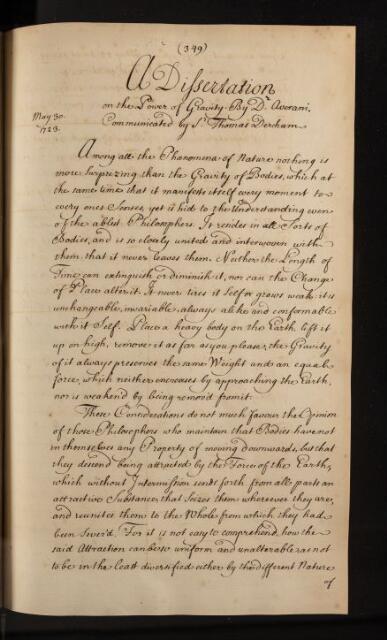 (349)
A Dissertation
on the Power of Gravity. By Dr. Averani,
May 30. Communicated by Sr. Thomas Dereham.
1723.
Among all the Phænomena of Nature nothing is
more surprizing than the Gravity of Bodies, which at
the same time that it manifests itself every moment to
every ones Senses, yet is hid to the Understanding even
of the ablest Philosophers. It resides in all Sorts of
Bodies, and is so closely united and interwoven with
them, that it never leaves them. Neither the Length of
Time can extinguish or diminish it, nor can the Change
of Place alter it. It never tires it Self or grows weak: it is
unchangeable, invariable, always alike and conformable
with it Self. Place a heavy body on the Earth, lift it
up on high, remove it as far as you please, the Gravity
of it always preserves the same Weight and an equal
force, which neither encreases by approaching the Earth,
nor is weaken'd by being remov'd from it.
These Considerations do not much favour the Opinion
of those Philosophers who maintain that Bodies have not
in themselves any Property of moving downwards, but that
they descend being attracted by the Force of the Earth,
which without Intermission sent forth from all parts an
attractive Substance, that seizes them wherever they are,
and reunites them to the Whole from which they had
been sever'd. For it is not easy to comprehend, how the
said Attraction can be so uniform and unalterable as not
to be in the least diversified either by the different Nature
of